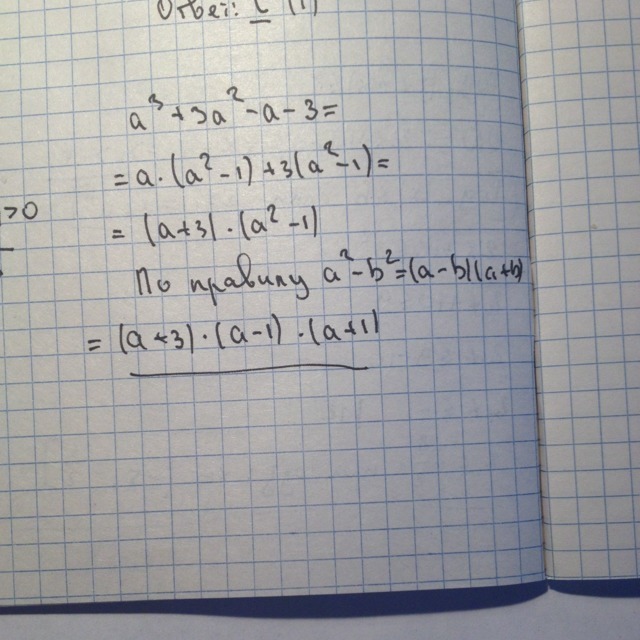 Ответ:
a³+3a²-a-3=
=a·(a²-1)+3(a²-1)=
>0
=(a+3)·(a²-1)
По правилу a²-b²=(a-b)(a+b)
=(a+3)·(a-1)·(a+1)